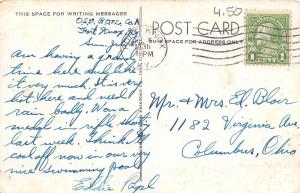 4.50
THIS SPACE FOR WRITING MESSAGES
POST CARD
THIS SPACE FOR ADDRESS ONLY
Fort Knox, Ky.
1936
PM
KY.
1 CENT 1
Am having a grand
time here and like
it very much. It is very
hot here and need
rain badly. Won a
medal in rifle shoot
last week. I think I'll
cool off now in our very
nice swimming pool.
Eddie
Mr. & Mrs. E. Bloir
1182 Virginia Ave
Columbus, Ohio